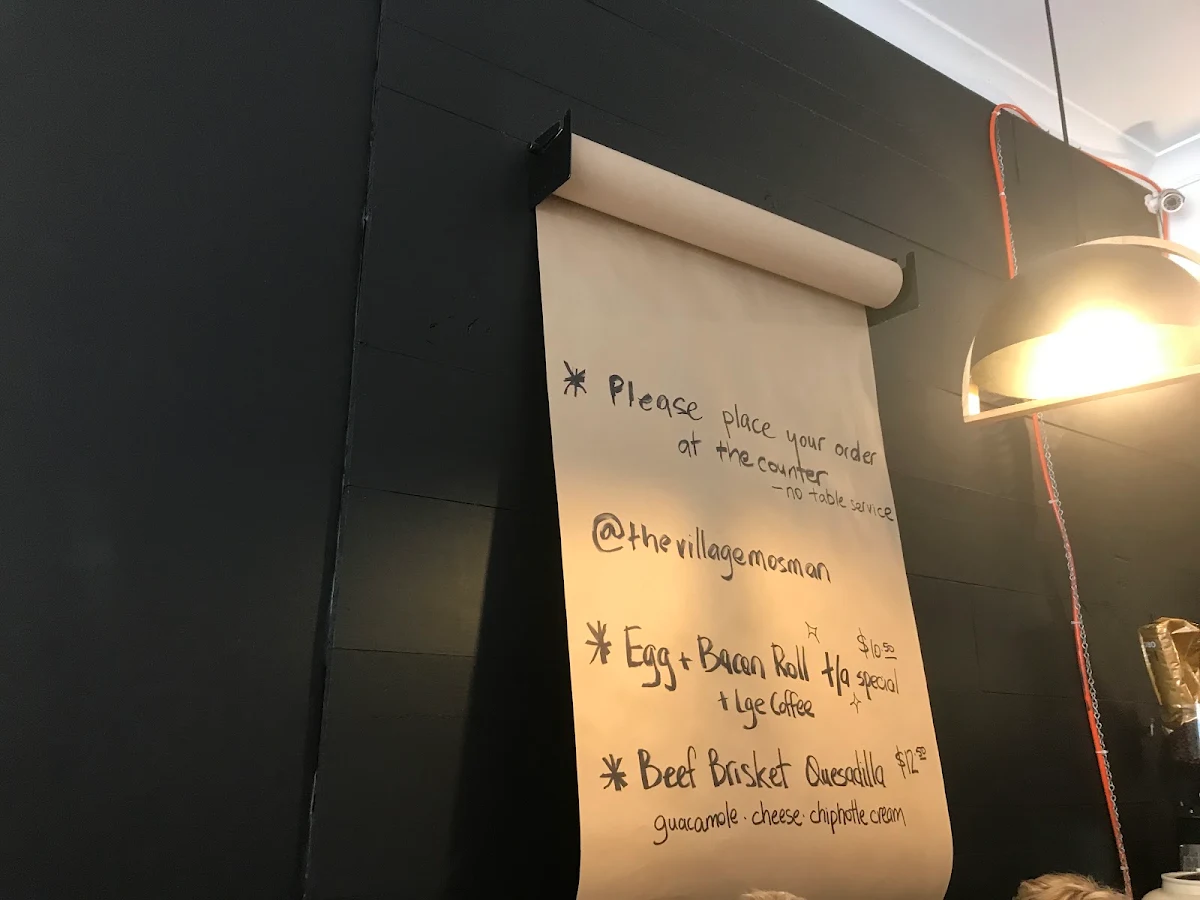 * Please place your order
at the counter
- no table service
@thevillagemosman
* Egg + Bacon Roll t/a special $10.50
+ Lge Coffee
* Beef Brisket Quesadilla $12.50
guacamole · cheese · chiphotle cream